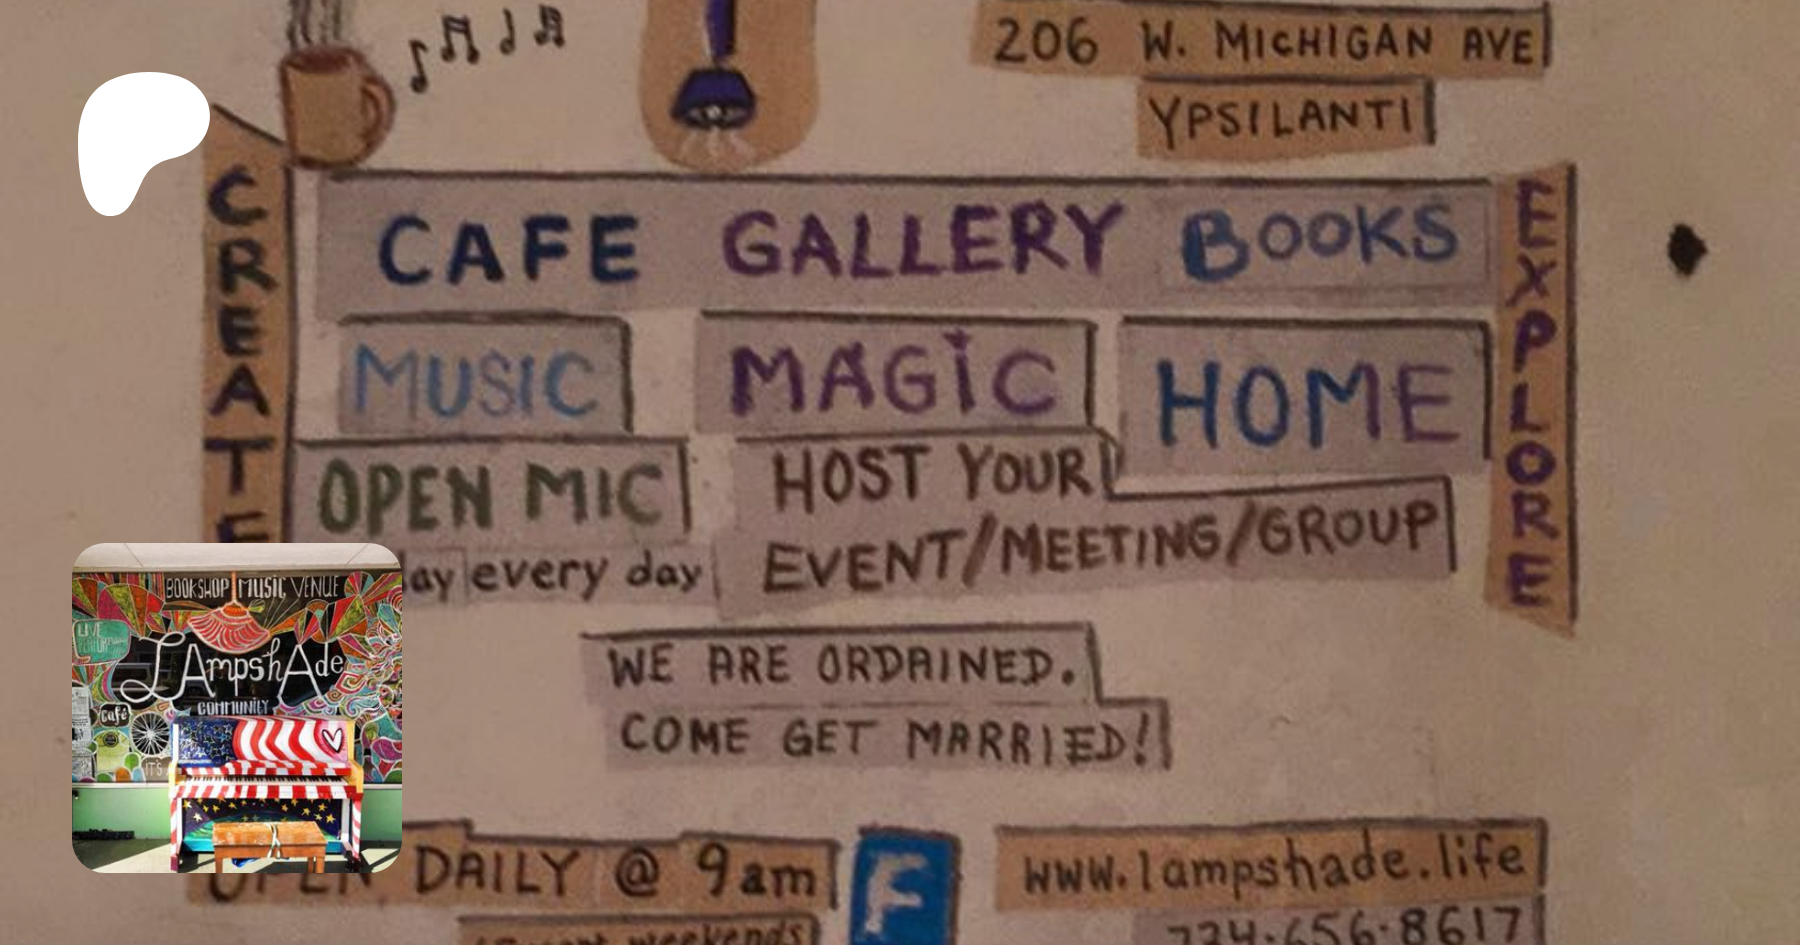 206 W. MICHIGAN AVE
YPSILANTI
CREATE
CAFE GALLERY BOOKS
EXPLORE
MUSIC MAGIC HOME
OPEN MIC
every day
HOST YOUR
EVENT/MEETING/GROUP
WE ARE ORDAINED.
COME GET MARRIED!
BOOKSHOP MUSIC VENUE
LIVE
LAmpshAde
COMMUNITY
Café
IT'S
OPEN DAILY @ 9am
weekends
F
www.lampshade.life
734-656-8617